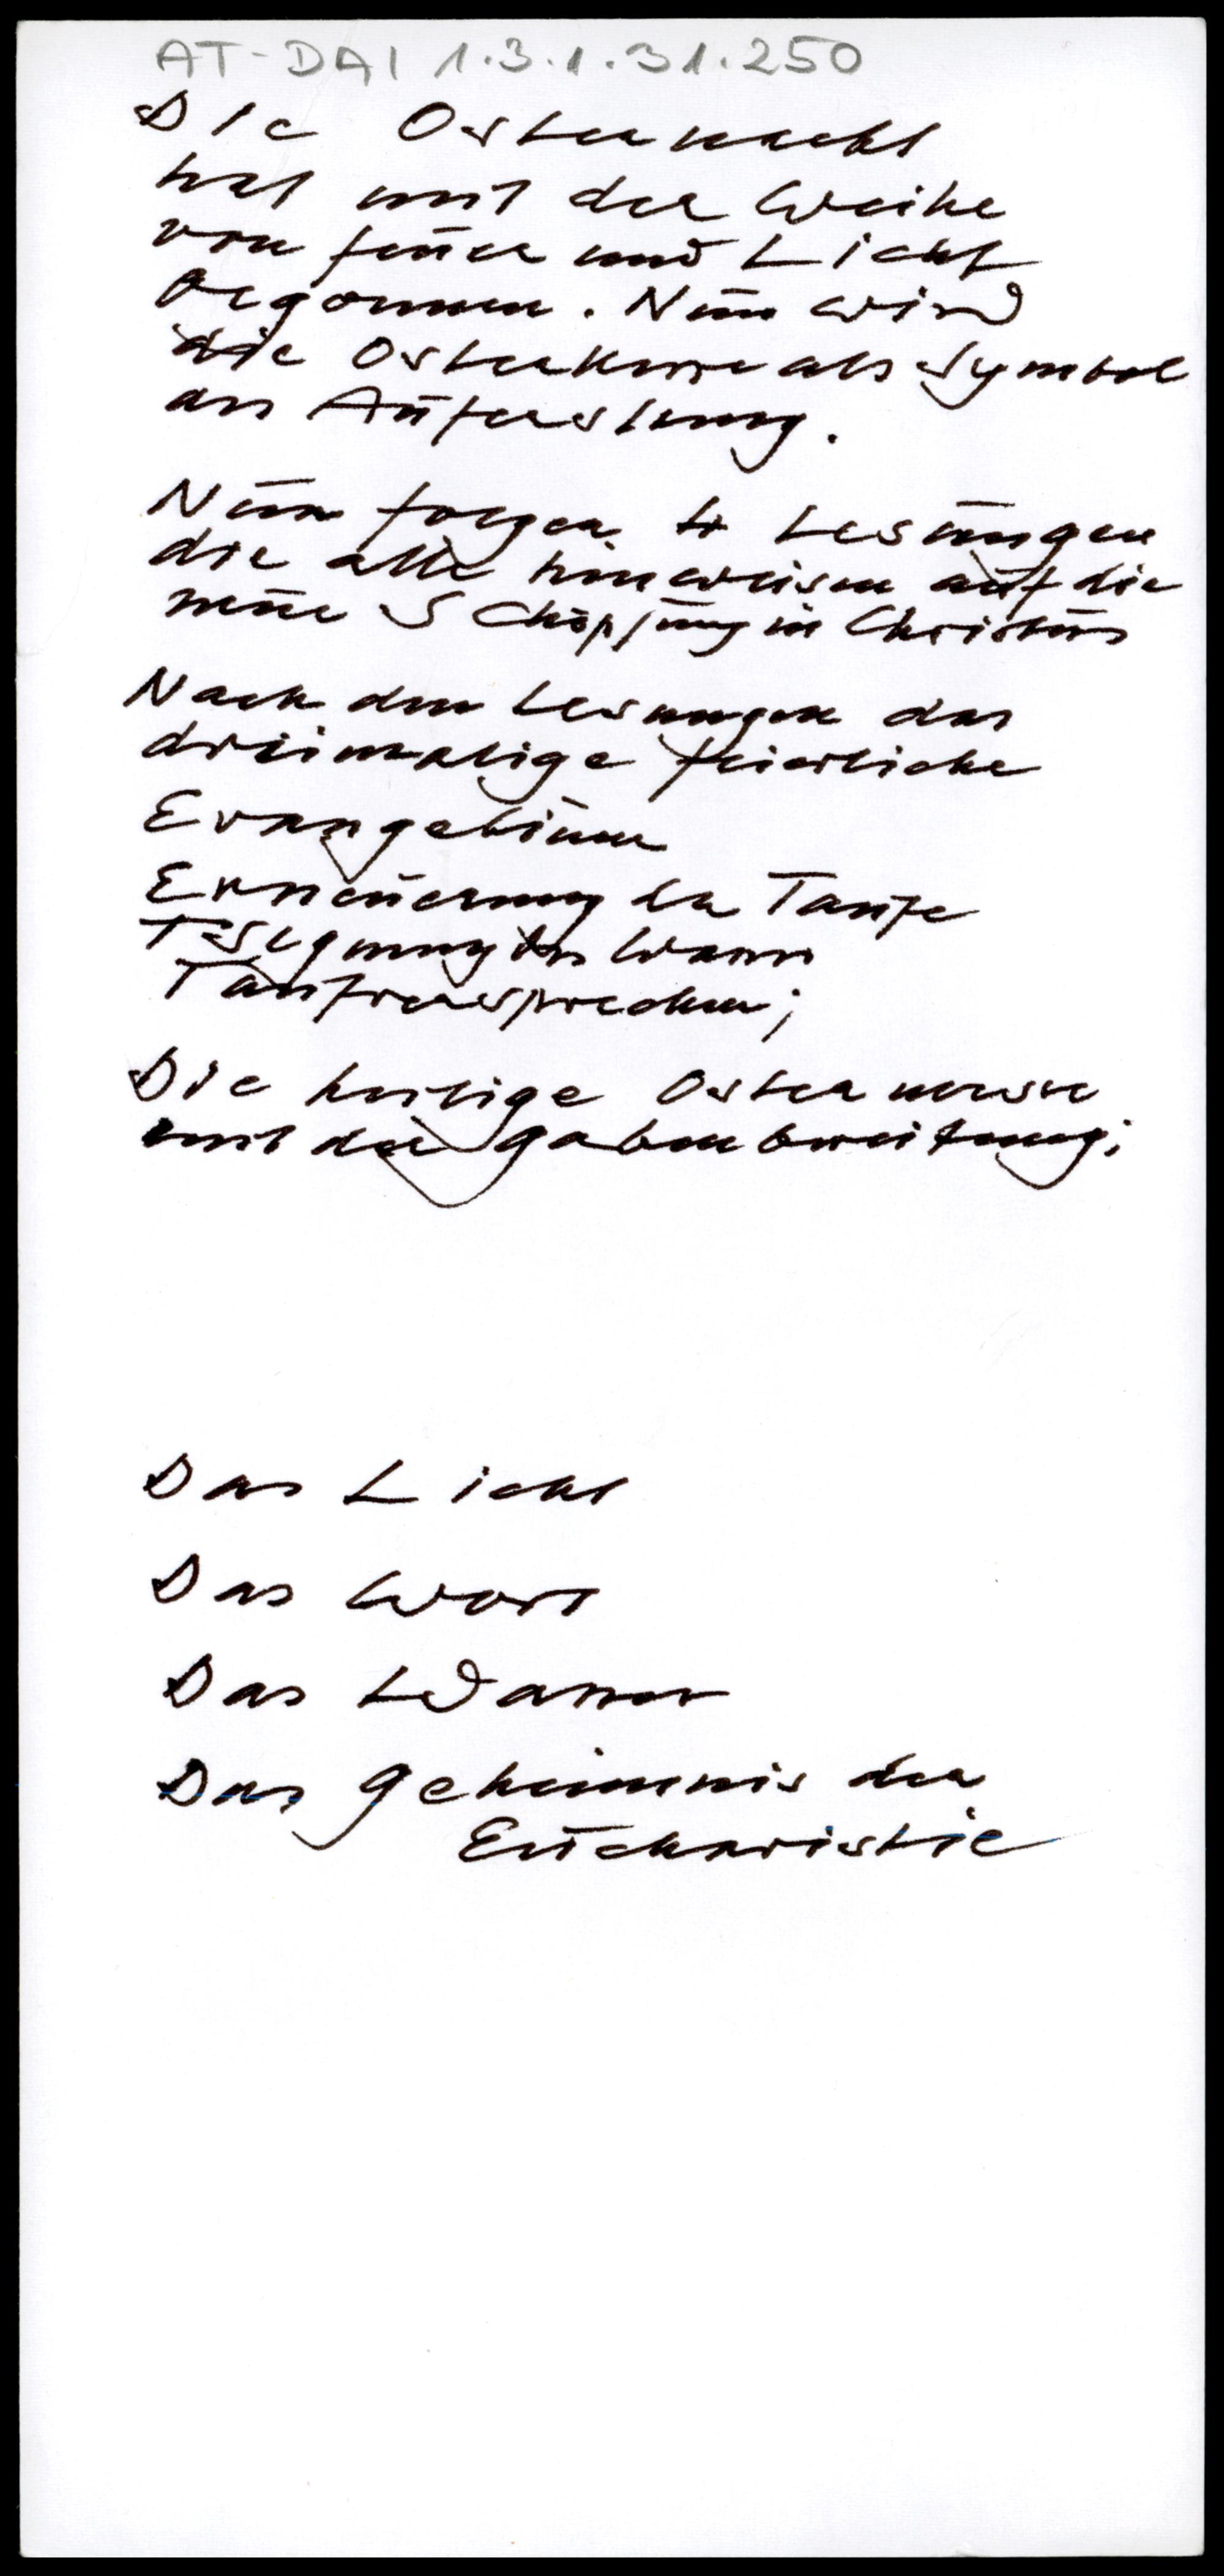 AT-DAI 1.3.1.31.250
Die Osternacht
hat mit der Weihe
von Feuer und Licht
begonnen. Nun wird
die Osterkerze als Symbol
der Auferstung.
Nun folgen 4 Lesungen
die alle hinweisen auf die
neue Schöpfung in Christus
Nach den Lesungen das
dreimalige feierliche
Evangelium
Erneuerung der Taufe
Segnung des Wassers
Taufversprechen;
Die heilige Ostermesse
mit der Gabenbereitung;
Das Licht
Das Wort
Das Wasser
Das Geheimnis der
Eucharistie